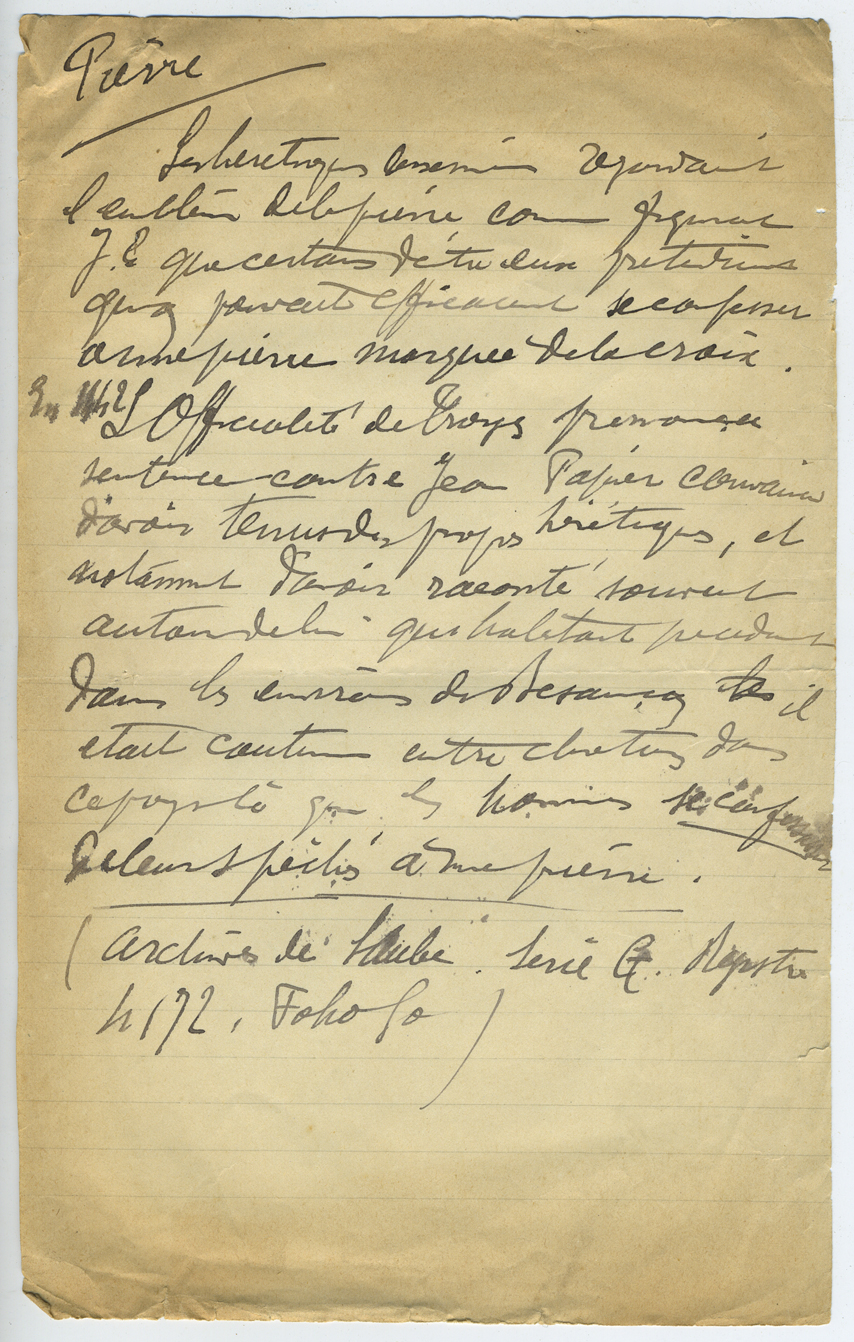 Pierre
Les hérétiques regardaient
l'emblème de la pierre comme figurant
J.C que certains d'entre eux prétendirent
qu'on pouvait efficacement se confesser
à une pierre marquée de la croix.
En 1442
L'Officialité de Troyes prononça
sentence contre Jean Papier convaincu
d'avoir tenus des propos hérétiques, et
notamment d'avoir raconté souvent
autour de lui qu'habitant
dans les environs de Besançon il
était coutume entre chretiens dans
ce pays là que les hommes se confesser
de leurs péchés à une pierre.
(Archives de l'Aube. Serie G. Registre
4172, Folio 60)